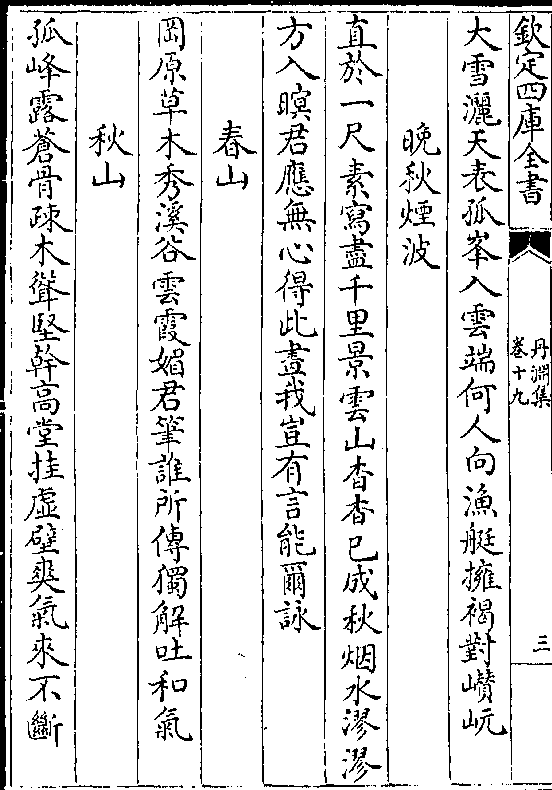 欽定四庫全書
丹淵集
卷十九
三
大雪灑天表孤峯入雲端何人向漁艇擁褐對巑岏
晚秋煙波
直於一尺素寫盡千里景雲山杳杳已成秋烟水漻漻
方入暝君應無心得此畫我豈有言能爾詠
春山
岡原草木秀溪谷雲霞媚君筆誰所傳獨解吐和氣
秋山
孤峰露蒼骨疎木聳堅幹高堂挂虛壁爽氣來不斷